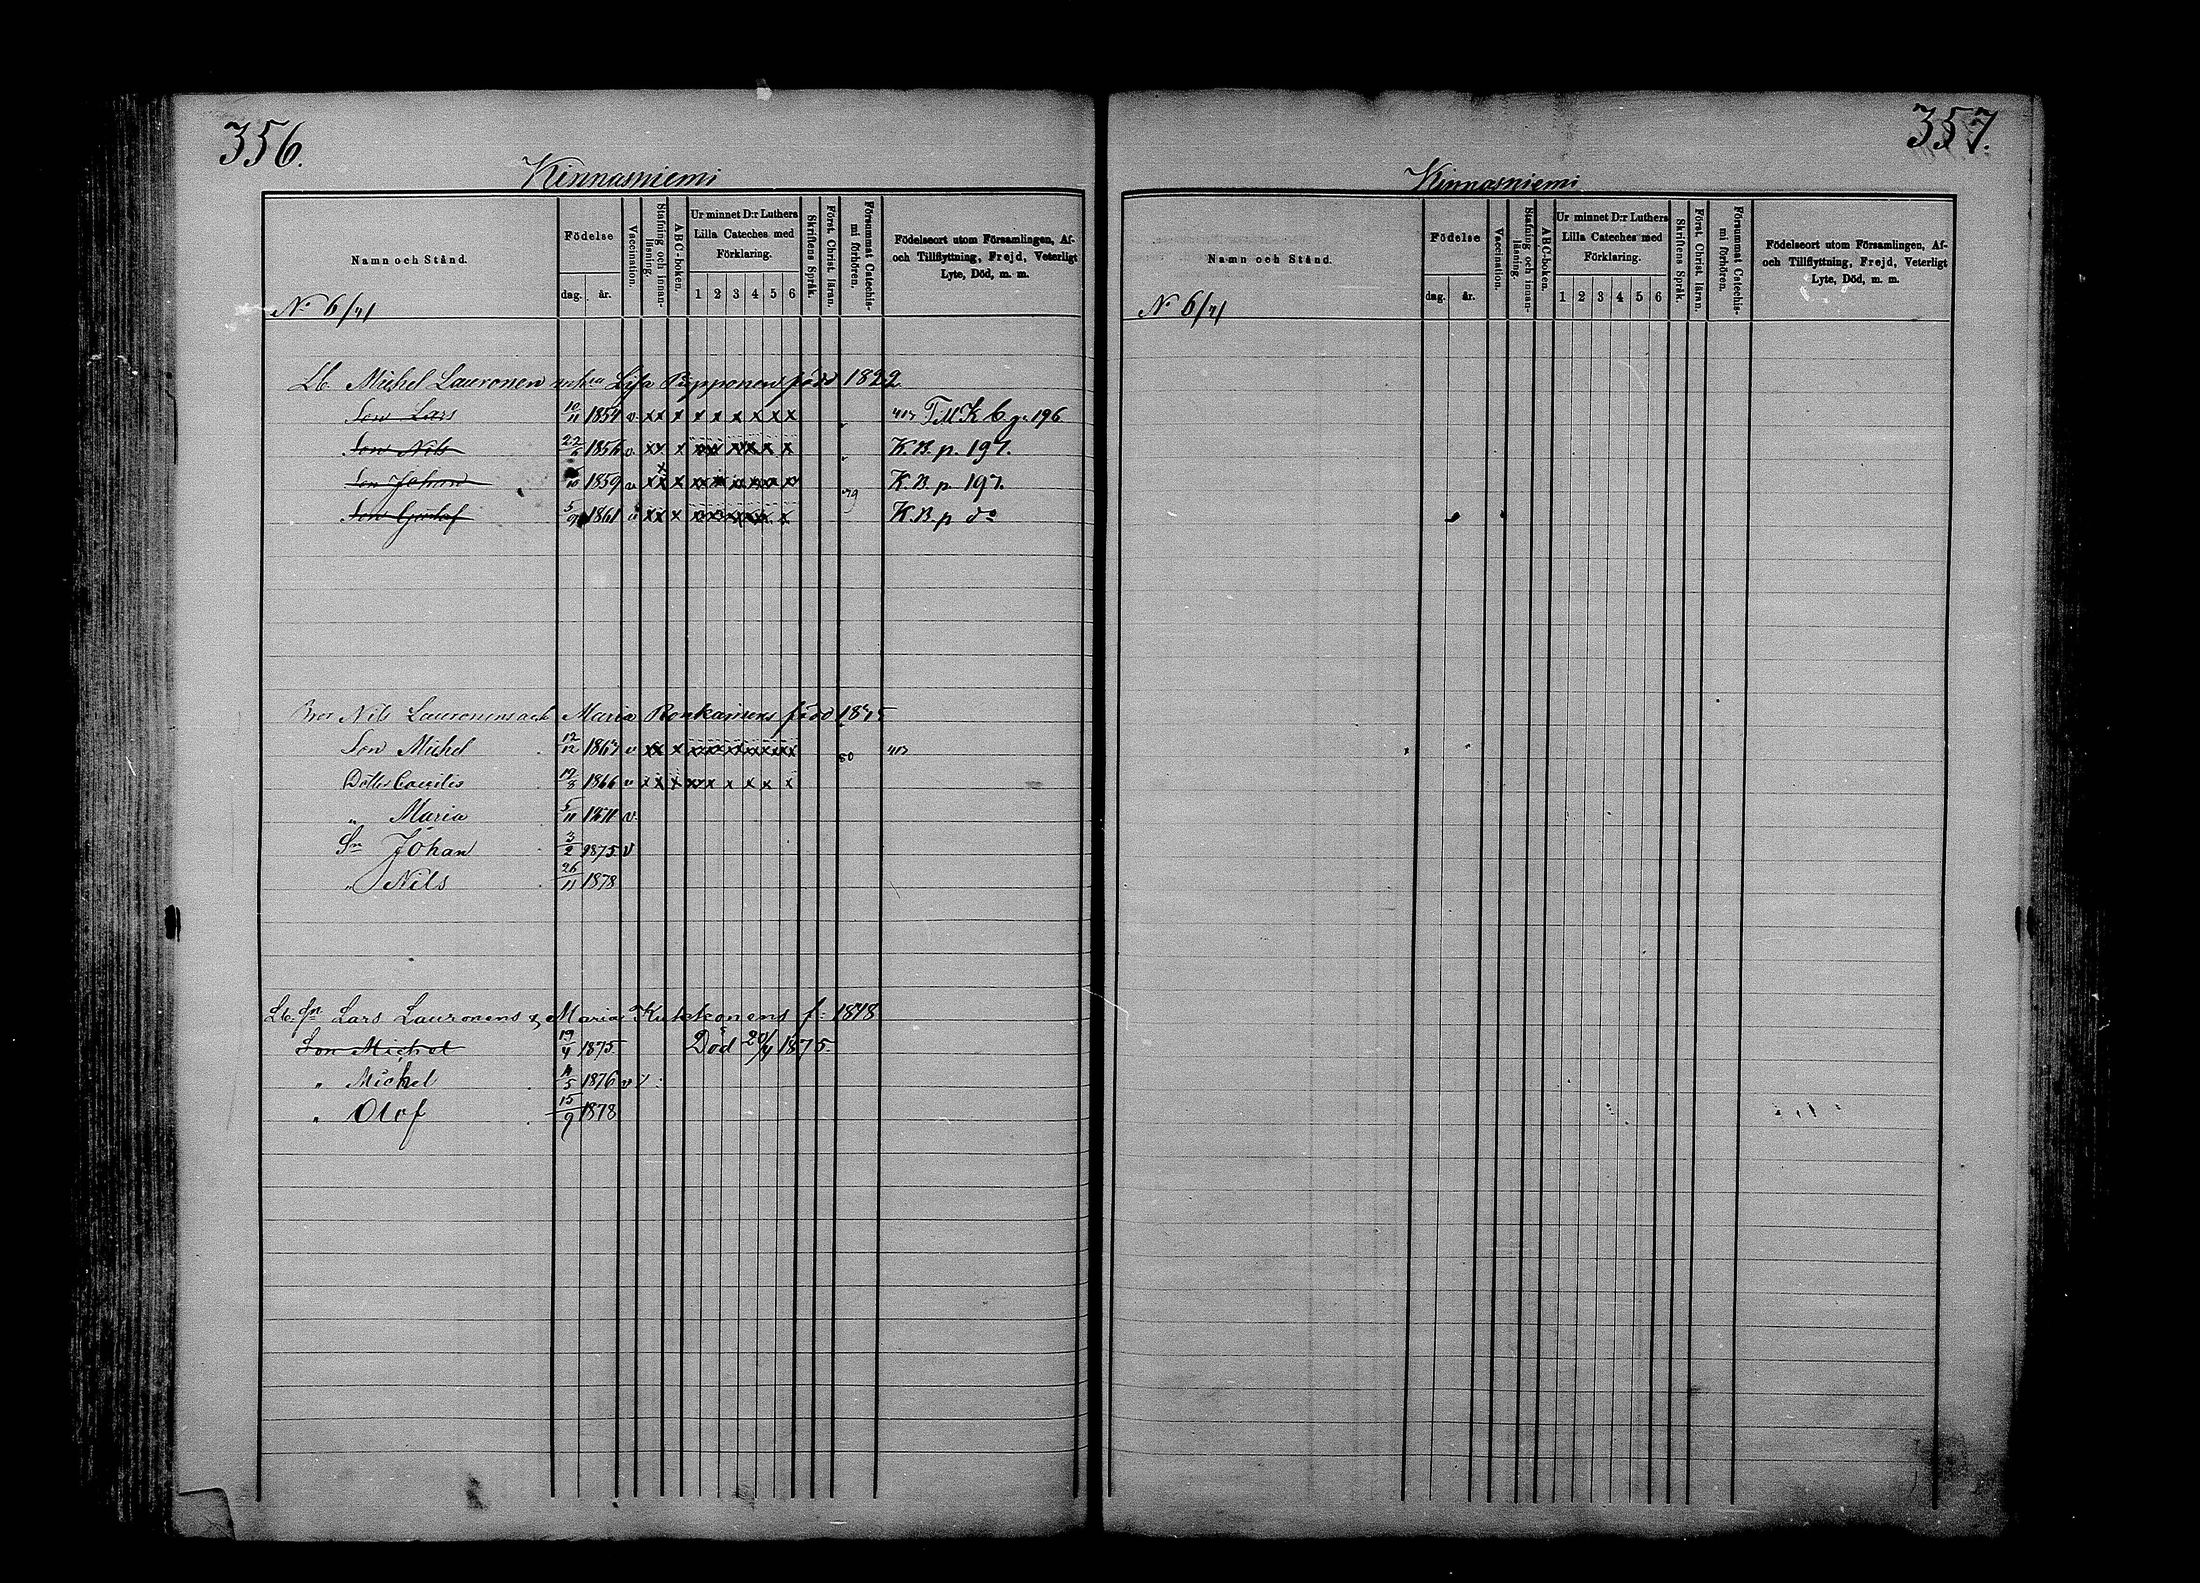 356.
Kinnasniemi
Namn och Stånd.
Födelse
dag. år.
Vaccination.
Stafning och innanläsning.
ABC-boken.
Ur minnet D:r Luthers Lilla Cateches med Förklaring.
1 2 3 4 5 6
Skriftens Språk.
Först. Christ. läran.
Försummat Catechismi förhören.
Födelseort utom Församlingen, Af- och Tillflyttning, Frejd, Veterligt Lyte, Död, m. m.
N° 6/71
Lb. Michel Lauronen Lisa Pipponens född 1822
Son Lars 10/11 1854 v xx x x x x x x x T M K b p. 196
Son Nils 22/6 1856 v xx x K.B. p. 197.
Son Johan 10 1859 v xx x K.B. p. 197.
Son Gustaf 5/9 1861 v xx x K.B. p d°
79
Bror Nils Lauronens och Maria Ronkainens född 1845
Son Michel 12/12 1867 v xx x 80
Dotter Cecilia 19/8 1866 v
" Maria 5/11 1871 v.
Sn Johan 3/2 1875 v
" Nils 26/11 1878
Lb. Sn Lars Lauronens & Maria Kukkonens f: 1848
Son Michel 19/4 1875. Död 20/4 1875.
" Michel 4/5 1876 v
" Olof 15/9 1878
357.
Kinnasniemi
Namn och Stånd.
Födelse
dag. år.
Vaccination.
Stafning och innanläsning.
ABC-boken.
Ur minnet D:r Luthers Lilla Cateches med Förklaring.
1 2 3 4 5 6
Skriftens Språk.
Först. Christ. läran.
Försummat Catechismi förhören.
Födelseort utom Församlingen, Af- och Tillflyttning, Frejd, Veterligt Lyte, Död, m. m.
N° 6/71